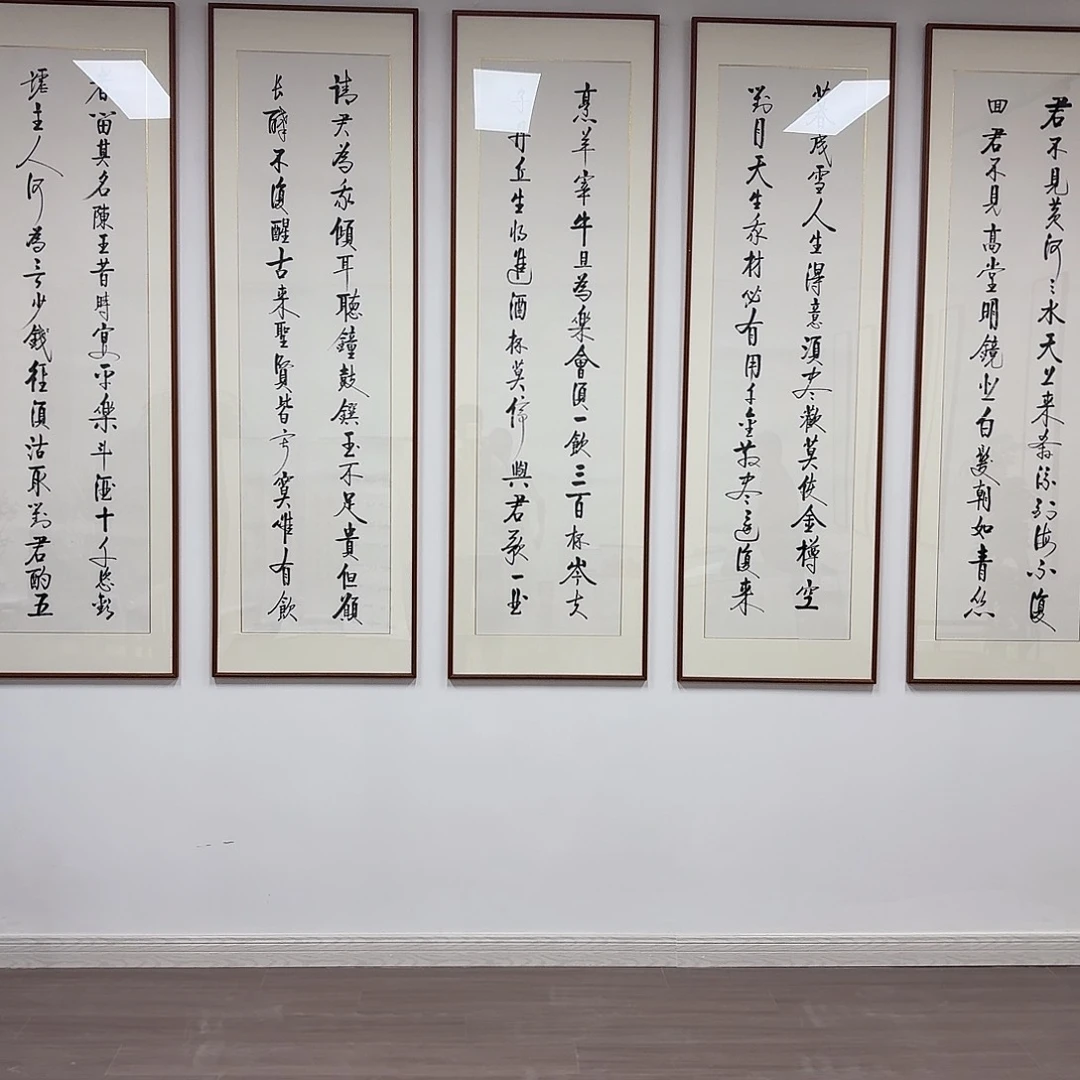 君不見黄河之水天上来奔流到海不復
回君不見高堂明鏡悲白髮朝如青絲
暮成雪人生得意須盡歡莫使金樽空
對月天生我材必有用千金散盡還復来
烹羊宰牛且為樂會須一飲三百杯岑夫
子丹丘生將進酒杯莫停與君歌一曲
請君為我傾耳聽鐘鼓饌玉不足貴但願
长醉不復醒古来聖賢皆寂寞唯有飲
者留其名陳王昔時宴平樂斗酒十千恣歡
謔主人何為言少錢徑須沽取對君酌五